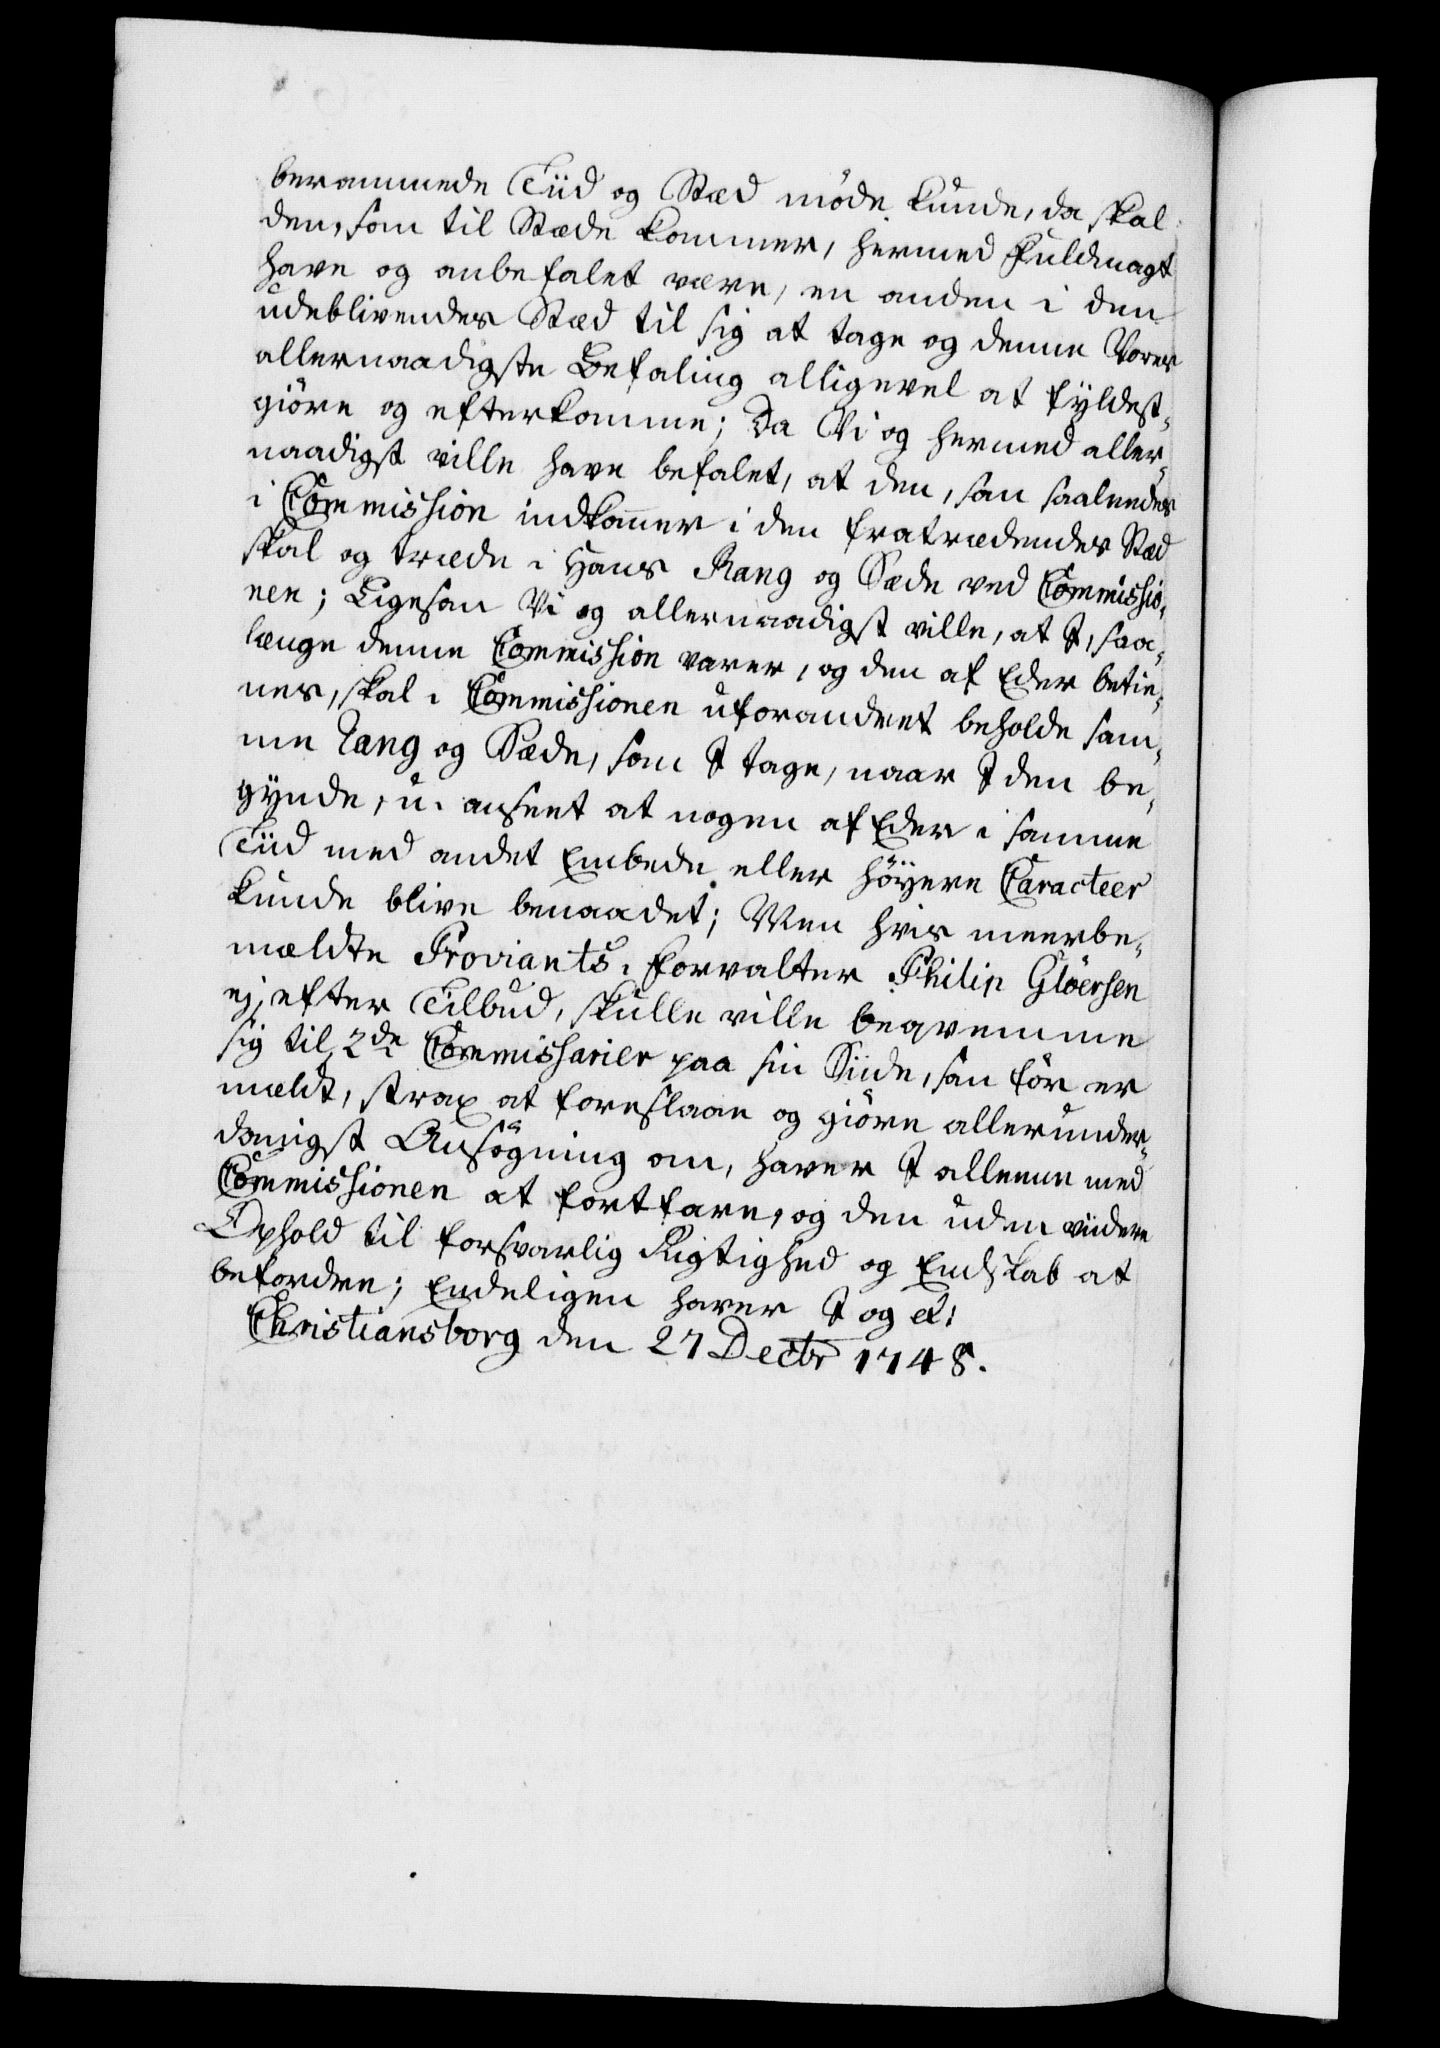 berammede Tiid og Stæd møde kunde, da skal
den, som til Stæde kommer, hermed Fuldmagt
have og anbefalet være, en anden i den
udeblivendes Stæd til sig at tage og denne Vores
allernaadigste Befaling alligevel at fyldest-
giöre og efterkomme; Da Vi og hermed aller-
naadigst ville have befalet, at den, som saaleedes
i Commission indkommer i den fratrædendes Stæd
skal og træde i Hans Rang og Sæde ved Commissio-
nen; Ligesom Vi og allernaadigst ville, at I, saa-
længe denne Commission varer, og den af Eder betie-
nes, skal i Commissionen uforandret beholde sam-
me Rang og Sæde, som I tage, naar I den be-
gynde, u-anseet at nogen af Eder i samme
Tiid med andet Embede eller höyere Caracteer
kunde blive benaadet; Men hvis meerbe-
meldte Proviants-Forvalter Philip Glöersen
ej, efter Tilbud, skulle ville beqvemme
sig til 2de Commissarier paa sin Siide, som för er
meldt, strax at foreslaae og giöre allerunder-
danigst Ansögning om, haver I alleene med
Commissionen at fortfare, og den uden viidere
Ophold til forsvarlig Rigtighed og Endskab at
befordre; Endeligen haver I og etc:
Christiansborg den 27 Decbr 1748.